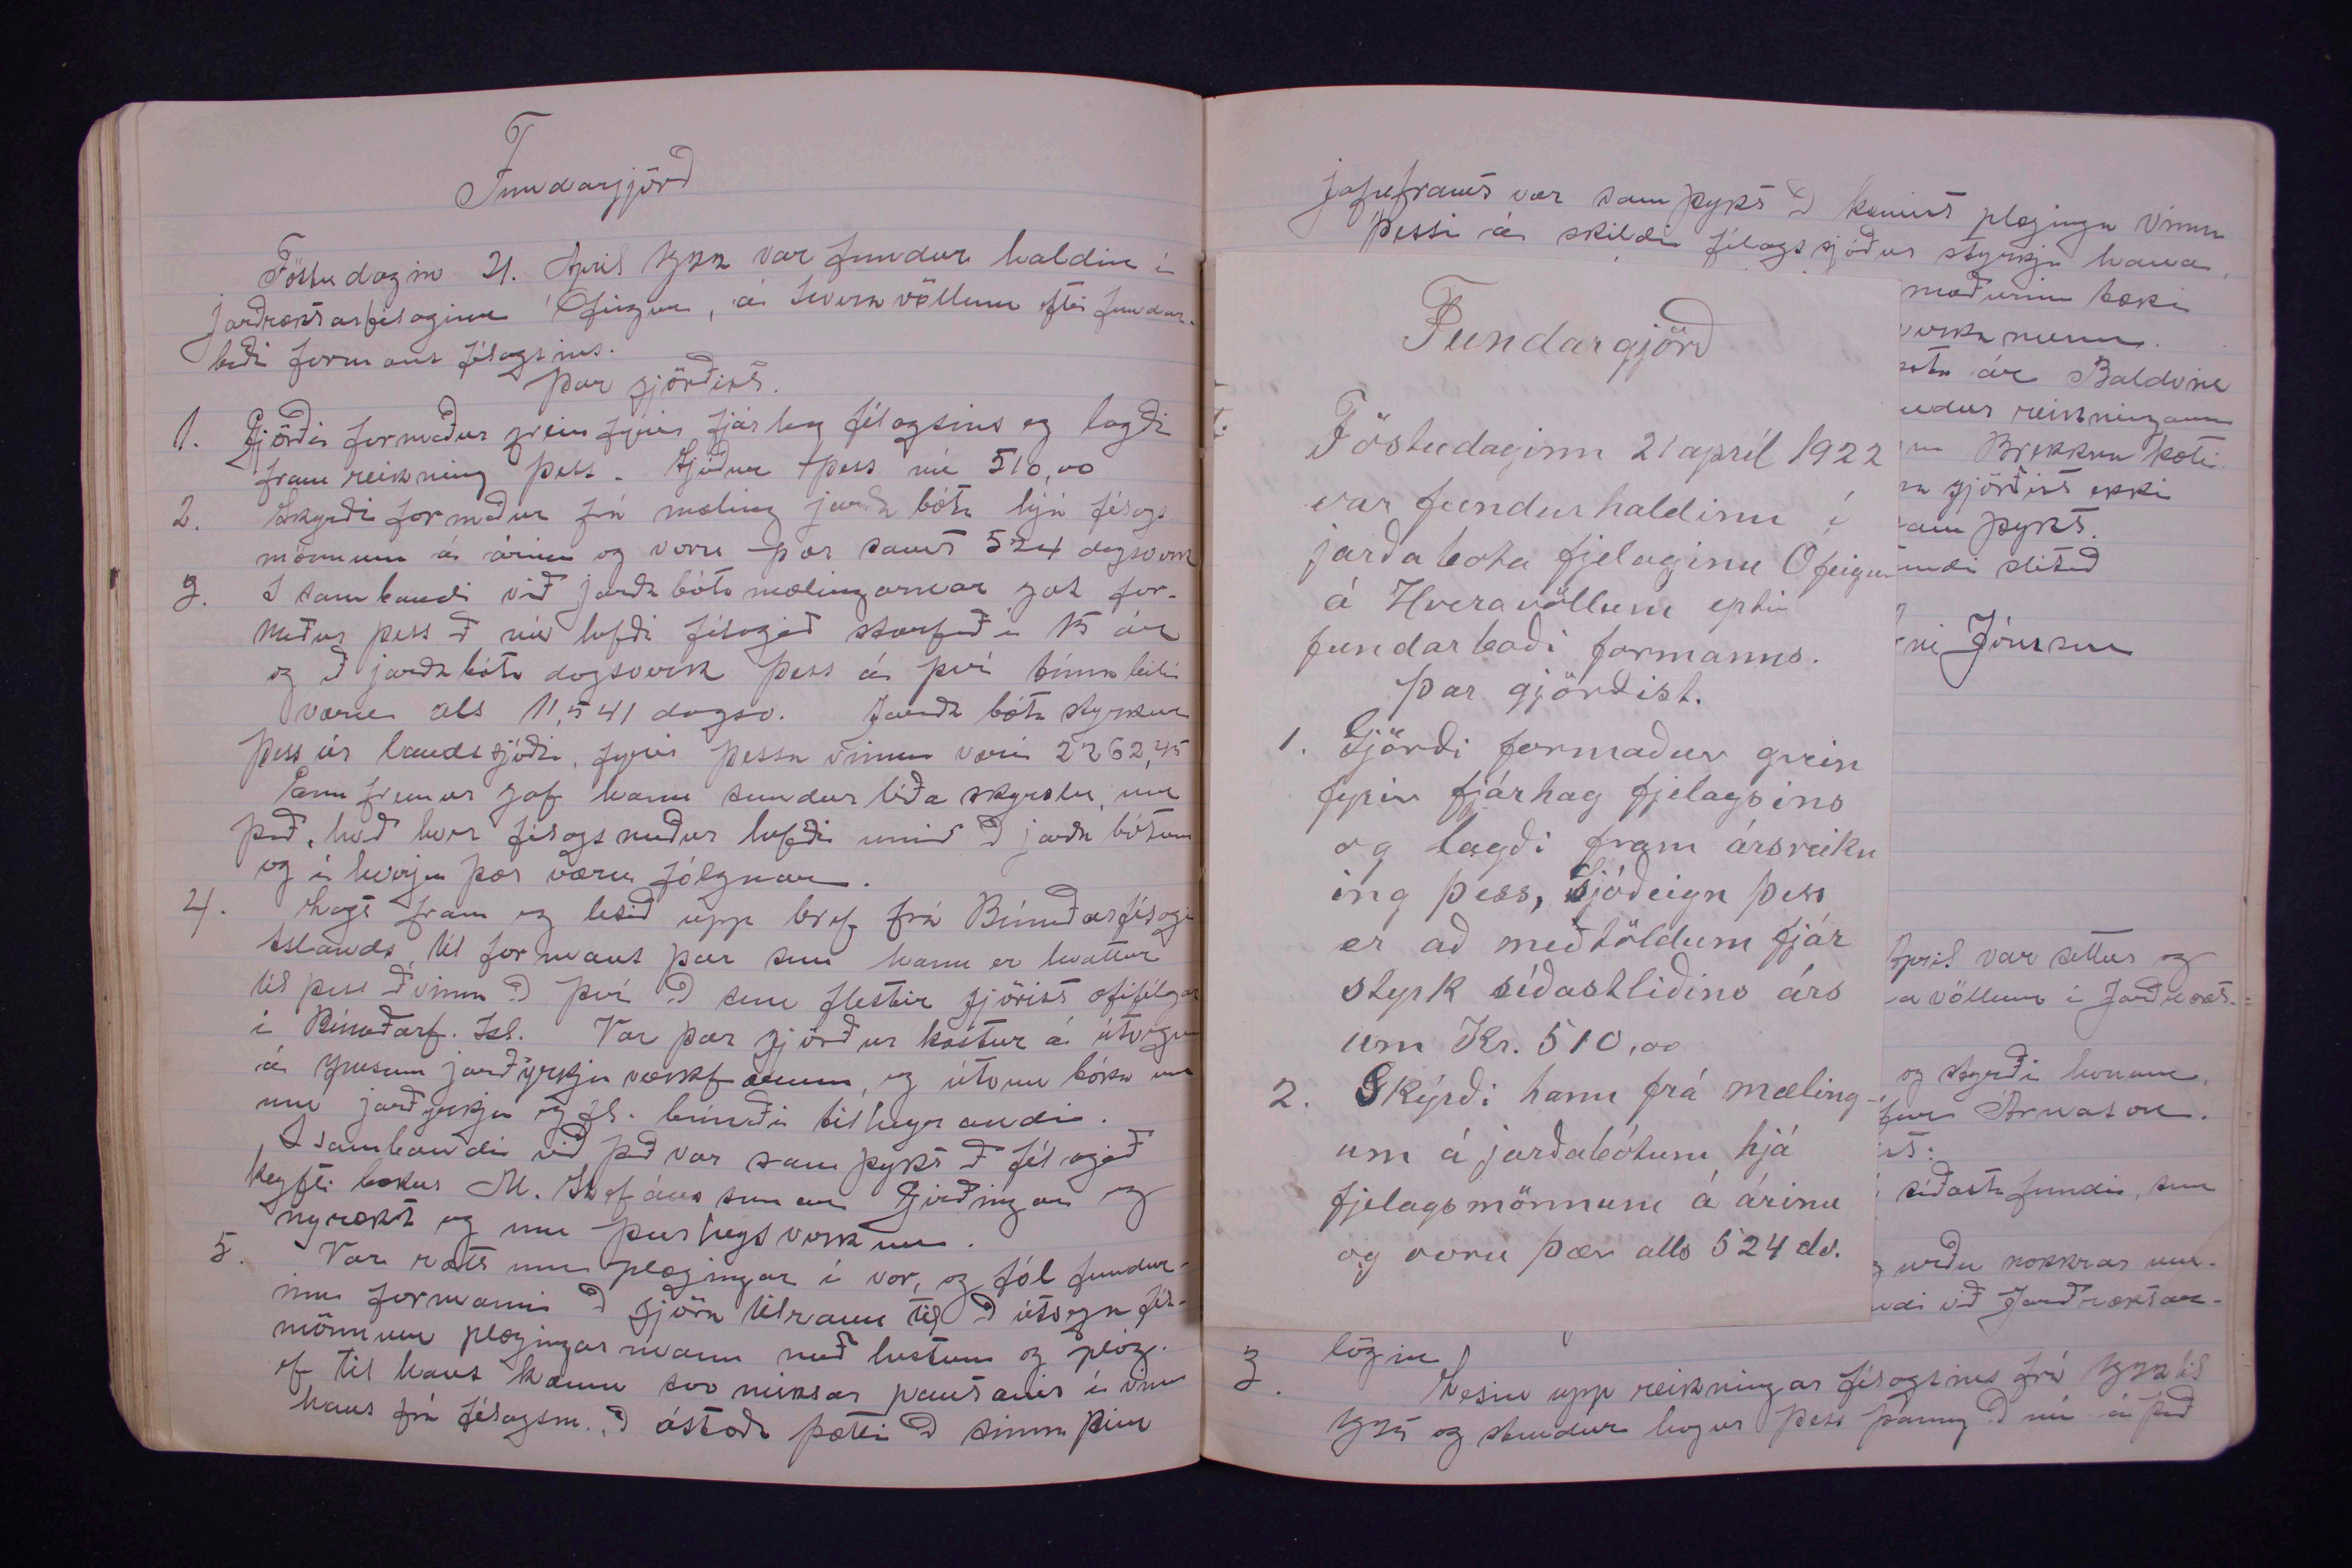 Fundargjörð
Föstudagin 21. April 1922 var fundur haldin í
Jarðræktarfélaginu Ófeigur, á Hveravöllum eftir fundar-
boði formans félagsins.
Þar gjörðist.
1. Gjörði formaður grein fyrir fjárhag félagsins og lagði
fram reikning þess. Sjóður þess nú 510,00
2. Skyrði formaður frá mæling jarðabóta hjá félags
mönnum á árinu og voru þær samt 524 dagsverk
3. I sambandi við jarðabóta mælingarnar gat for-
maður þess að nú hefði félagið starfað í 15 ár
og að jarðabóta dagsverk þess á því tímabili
væru als 11,541 dagsv. Jarðabóta styrkur
þess úr landssjóði, fyrir þessa vinnu væri 2262,45
Enn fremur gaf hann sundurliða skyrslu, um
það, hvað hver félagsmaður hefði unnið að jarðabótum
og í hverju þær væru fólgnar.
4. Lagt fram og lesið upp bref frá Búnaðarfélagi
Islands, til formans þar sem hann er hvattur
til þess að vinna að því að sem flestir gjörist æfifélagar
í Búnaðarf. Isl. Var þar gjörður kostur á útvegun
á ymsum jarðyrkju verkfærum, og útvegun bóka um
um jarðyrkju og fl. búnaði tilheyrandi.
I sambandi við það var samþykt að félagið
keyfti bækur M. Stefánssonar Girðingar og
nyrækt og um þurheysverkun.
5. Var rætt um plægingar í vor, og fól fundur-
inn formanni að gjöra tilraun til að útvega fél-
mönnum plægingarmann með hestum og plóg.
ef til hans kæmu svo miklar pantanir í vinnu
hans frá félagsm., að ástæða þætti að sinna þeim
Jafnframt var samþykt að kæmist plæginga vinna
þessi á skildi félagssjóður styrkja hana,
maðurinn tæki
verka mun.
ár Baldvin
reikningana
Brekknakoti
gjörðist ekki
samþykt.
slitið
Jónsson
Fundargjörð
Föstudaginn 21 apríl 1922
var fundur haldinn í
jarðabóta fjelaginu Ófeigur
á Hveravöllum eptir
fundarboði formanns.
Þar gjörðist.
1. Gjörði formaður grein
fyrir fjárhag fjelagsins
og lagði fram ársreikn
ing þess, Sjóðeign þess
er að meðtöldum fjár
styrk síðastliðins árs
um Kr. 510,00
2. Skýrði hann frá mæling-
um á jarðabótum hjá
fjelagsmönnum á árinu
og voru þær alls 524 dv.
April var settur og
völlum í Jarðrækt-
og styrði honum,
Árnason.
síðasta fundi, sem
urðu nokkrar um-
við Jarðræktar-
lögin
3. Lesin upp reikningar félagsins frá 1922 til
og stendur hagur þess þannig að nú á það